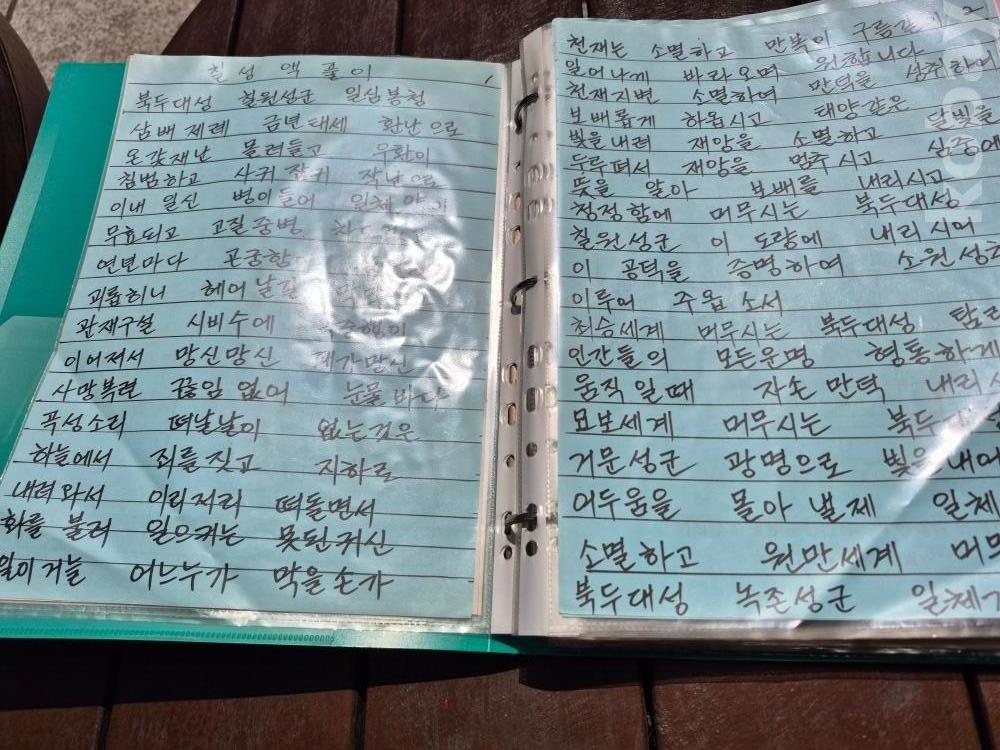 칠성액풀이
1
북두대성 칠원성군 일심봉청
삼배제례 금년태세 환난으로
온갖재난 몰려들고 우환이
침범하고 사귀잡귀 작난으로
이내일신 병이들어 일체
무효되고 고질중병
연년마다 곤궁함
괴롭히니 헤어날길
관재구설 시비수에
이어저서 망신망신 패가망신
사망복력 끊임없어 눈물바다
곡성소리 떠날날이 없는것은
하늘에서 죄를짓고 지하로
내려와서 이리저리 떠돌면서
화를 불러 일으키는 못된귀신
일이거늘 어느누가 막을손가
2
천재는 소멸하고 만복이 구름같이
일어나게 바라오며 원합니다
천재지변 소멸하여 만덕을 성취하여
보배롭게 하옵시고 태양같은
빛을내려 재앙을 소멸하고 달빛을
두루펴서 재앙을 멈추시고 심중에
뜻을 알아 보배를 내리시고
청정함에 머무시는 북두대성
칠원성군 이 도량에 내리시어
이 공덕을 증명하여 소원성취
이루어 주옵소서
최승세계 머무시는 북두대성 탐
인간들의 모든운명 형통하게
움직일때 자손만덕 내리
묘보세계 머무시는 북두대
거문성군 광명으로 빛을내어
어두움을 몰아낼제 일체
소멸하고 원만세계 머무
북두대성 녹존성군 일체